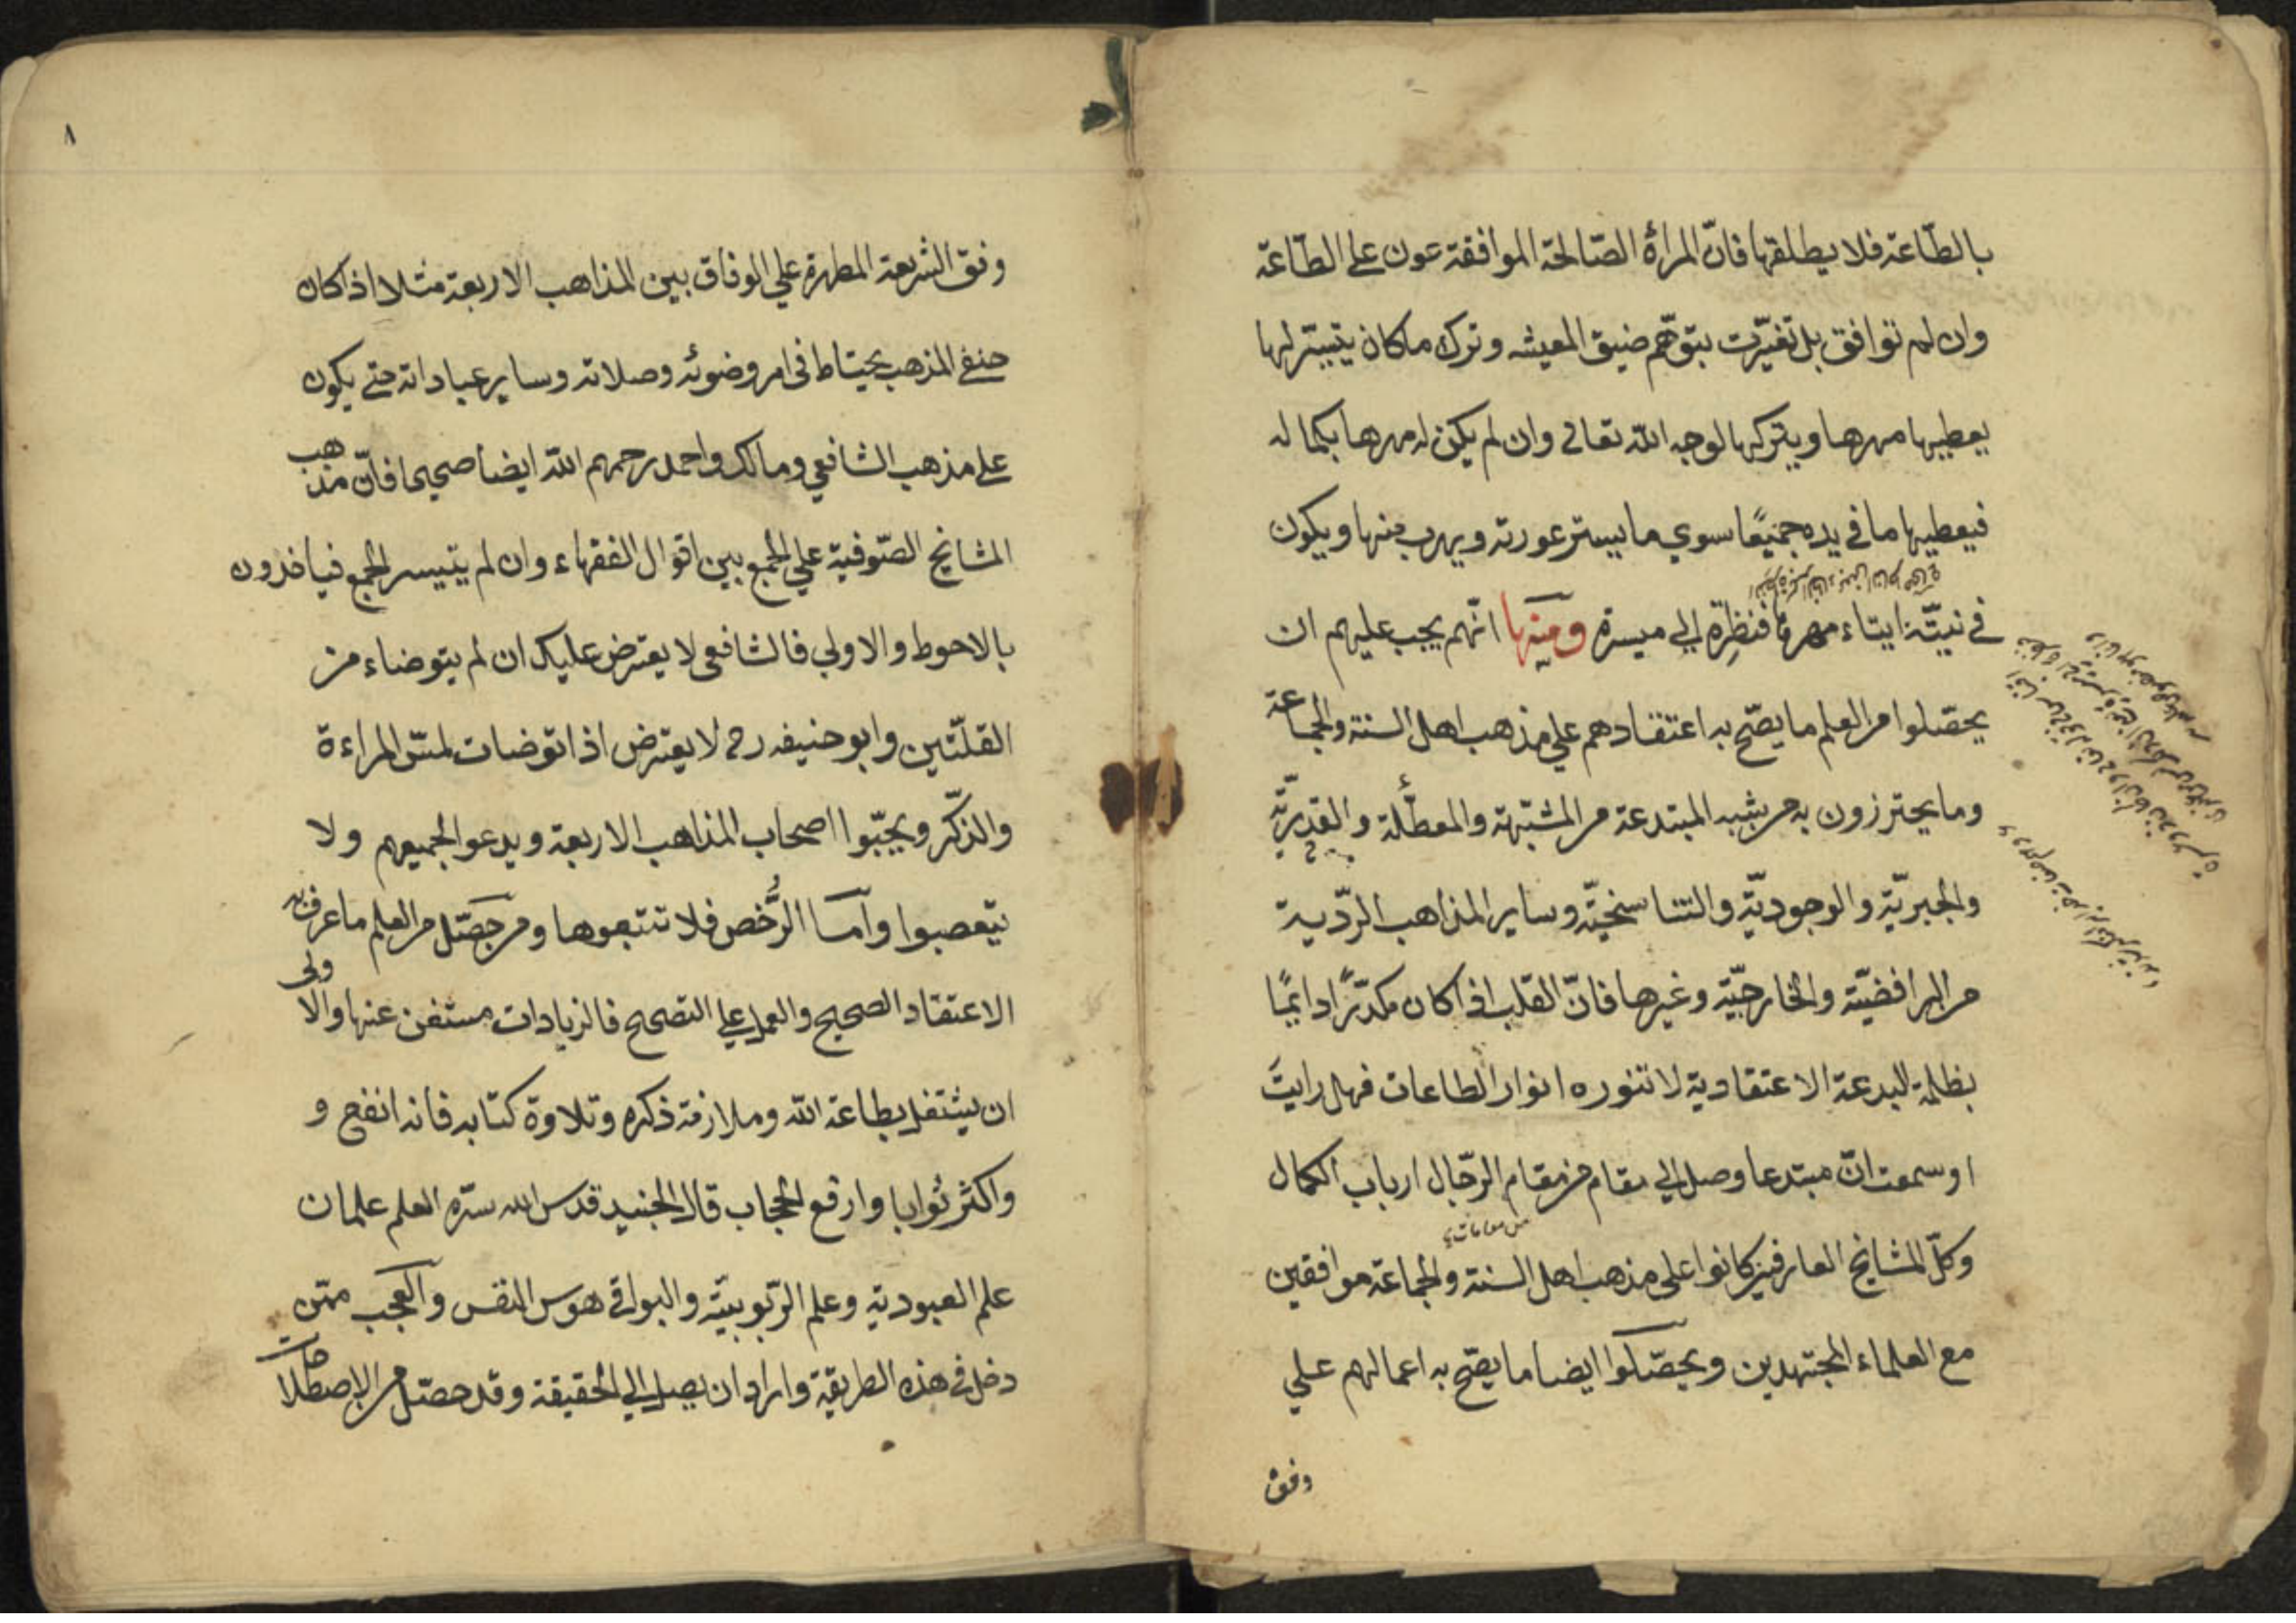 بالطّاعة فلا يطلقها فانّ المرأة الصّالحة الموافقة عون على الطّاعة
وان لم توافق بل تغيّرت بتوهّم ضيق المعيشه وترك ماكان يتيسّر لها
يعطيها مهرها ويتركها لوجه الله تعالى وان لم يكن له مهرها بكماله
فيعطيها ما في يده جميعًا سوي ما يستر عورته ويهرب منها ويكون
في نيّته ايتاء مهرها فنظِرة إلى ميسرة ومنها انّهم يجب عليهم ان
يحصّلوا من العلم ما يصّح به اعتقادهم علي مذهب اهل السنة والجماعة
وما يحترزون به من شبه المبتدعة من المشبّهة والمعطّلة والقدريّة
والجبريّة والوجوديّة والتناسخيّة وساير المذاهب الرّديية
من الرافضيّة والخارجيّة وغيرها فانّ القلب اذا كان مكدّرًا دايمًا
بظلمة البدعة الاعتقادية لا تنوره انوار الطاعات فهل رايتَ
او سمعت انّ مبتدعا وصل الي مقام من مقام الرّجال ارباب الكمال
من مقامات
وكلّ المشايخ العارفين كانوا على مذهب اهل السنة والجماعة موافقين
مع العلماء المجتهدين ويحصّلوا ايضا ما يصّح به اعمالهم علي
وفق
٨
وفق الشريعة المطهرة علي الوفاق بين المذاهب الاربعة مثلا اذا كان
حنفي المذهب يحتاط في امر وضوئه وصلاته وساير عباداته حتى يكون
على مذهب الشافعي ومالك واحمد رحمهم الله ايضا صحيحا فانّ مذهب
المشايخ الصّوفية علي الجمع بين اقوال الفقهاء وان لم يتيسر الجمع فياخذون
بالاحوط والاولي فالشافعى لا يعترض عليك ان لم يتوضاء من
القلّتين وابو حنيفه رح لا يعترض اذا توضات لمسّ المراءة
والذكّر ويحبّوا اصحاب المذاهب الاربعة ويدعوا لجميعهم ولا
يتعصبوا وآمّا الرُّخص فلا تتبعوها ومن حصّل من العلم ما عرف به
الاعتقاد الصحيح والعمل علي التصحيح فالزيادات مستغن عنها والاولى
ان يشتغل بطاعة الله وملازمة ذكره وتلاوة كتابه فانه انفح و
واكثر ثوابا وارفع للحجاب قال الجنيد قدس الله سرّه العلم علمان
علم العبودية وعلم الرّبوبيّة والبواقي هوس النفس والعجب ممّن
دخل في هذه الطريقة واراد ان يصل الي الحقيقة وقد حصّل من الاصطلاحات